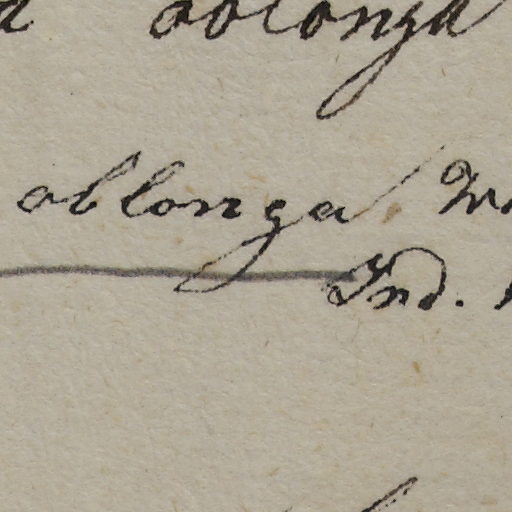 oblonga
oblonga
Ind.